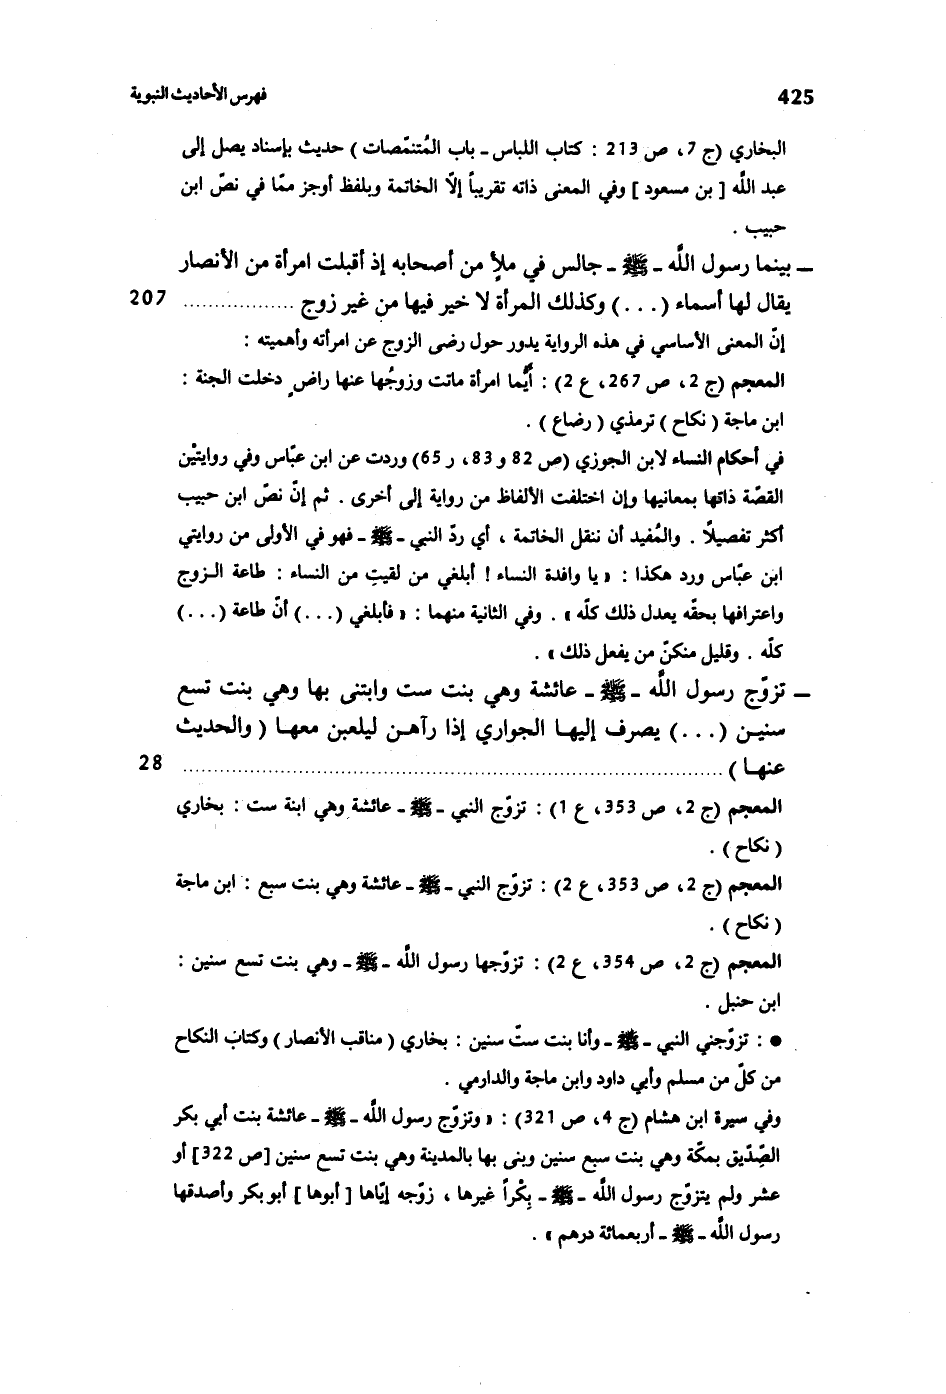 425 فهرس الأحاديث النبوية
البخاري (ج 7، ص 213 : كتاب اللباس ـ باب المُتنمّصات ) حديث بإسناد يصل إلى
عبد اللَّه [ بن مسعود ] وفي المعنى ذاته تقريباً إلاّ الخاتمة وبلفظ أوجز ممّا في نصّ ابن
حبيب .
ـ بينما رسول اللَّه ـ ﷺ ـ جالس في ملأ من أصحابه إذ أقبلت امرأة من الأنصار
يقال لها أسماء (. . .) وكذلك المرأة لا خير فيها من غير زوج .................. 207
إنّ المعنى الأساسي في هذه الرواية يدور حول رضى الزوج عن امرأته وأهميته :
المعجم (ج 2، ص 267، ع 2) : أيُّما امرأة ماتت وزوجُها عنها راضٍ دخلت الجنة :
ابن ماجة ( نكاح ) ترمذي ( رضاع ) .
في أحكام النساء لابن الجوزي (ص 82 و 83، ر 65) وردت عن ابن عبّاس وفي روايتيْن
القصّة ذاتها بمعانيها وإن اختلفت الألفاظ من رواية إلى أخرى . ثم إنّ نصّ ابن حبيب
أكثر تفصيلاً . والمُفيد أن ننقل الخاتمة ، أي ردّ النبي ـ ﷺ ـ فهو في الأولى من روايتي
ابن عبّاس ورد هكذا : « يا وافدة النساء ! أبلغي من لقيتِ من النساء : طاعة الـزوج
واعترافها بحقّه يعدل ذلك كلّه » . وفي الثانية منهما : « فأبلغي (. . .) أنّ طاعة (. . .)
كلّه . وقليل منكنّ من يفعل ذلك » .
ـ تزوّج رسول اللَّه ـ ﷺ ـ عائشة وهي بنت ست وابتنى بها وهي بنت تسع
سنيـن (. . .) يصرف إليهـا الجواري إذا رآهـن ليلعبن معهـا ( والحديث
عنهـا ) ............................................................ 28
المعجم (ج 2، ص 353، ع 1) : تزوّج النبي ـ ﷺ ـ عائشة وهي ابنة ست : بخاري
( نكاح ) .
المعجم (ج 2، ص 353، ع 2) : تزوّج النبي ـ ﷺ ـ عائشة وهي بنت سبع : ابن ماجة
( نكاح ) .
المعجم (ج 2، ص 354، ع 2) : تزوّجها رسول اللَّه ـ ﷺ ـ وهي بنت تسع سنين :
ابن حنبل .
● : تزوّجني النبي ـ ﷺ ـ وأنا بنت ستّ سنين : بخاري ( مناقب الأنصار ) وكتاب النكاح
من كلّ من مسلم وأبي داود وابن ماجة والدارمي .
وفي سيرة ابن هشام (ج 4، ص 321) : « وتزوّج رسول اللَّه ـ ﷺ ـ عائشة بنت أبي بكر
الصِّدّيق بمكّة وهي بنت سبع سنين وبنى بها بالمدينة وهي بنت تسع سنين [ص 322] أو
عشر ولم يتزوّج رسول اللَّه ـ ﷺ ـ بِكْراً غيرها ، زوّجه إيّاها [ أبوها ] أبو بكر وأصدقها
رسول اللَّه ـ ﷺ ـ أربعمائة درهم » .